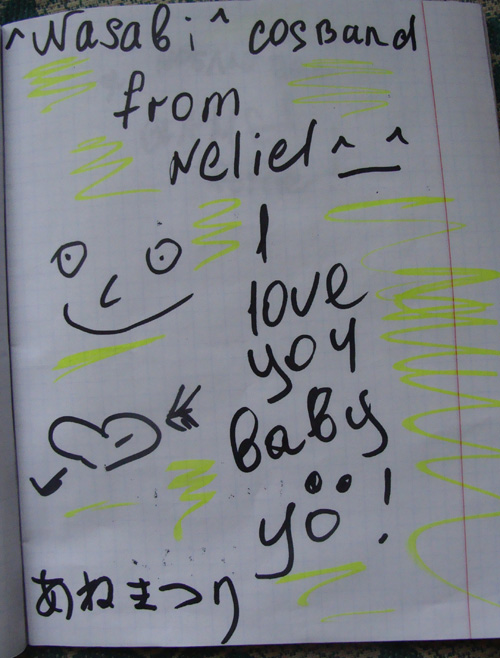 ^Wasabi^ cosBand
from
Neliel ^_^
I
love
you
Baby
yö!
あねまつり